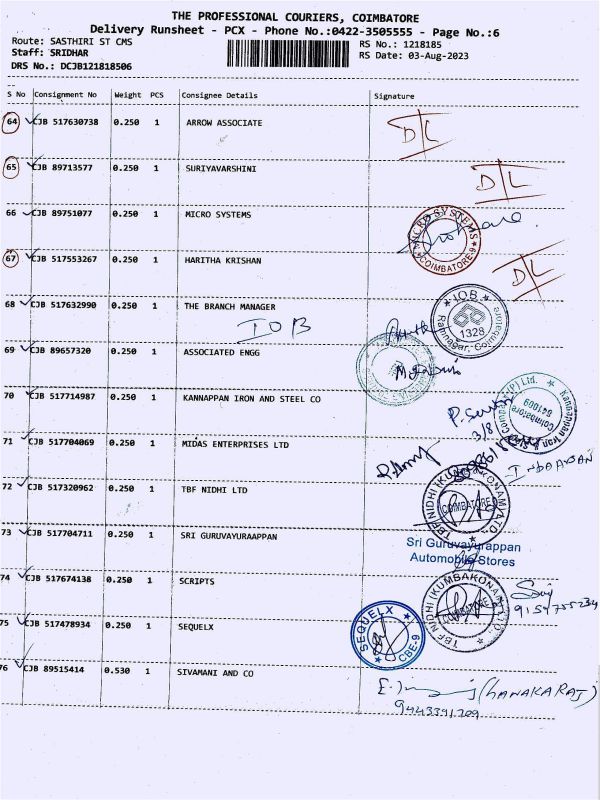 THE PROFESSIONAL COURIERS, COIMBATORE
Delivery Runsheet - PCX - Phone No.:0422-3505555 - Page No.:6
Route: SASTHIRI ST CMS
RS No.: 1218185
Staff: SRIDHAR
RS Date: 03-Aug-2023
DRS No.: DCJB121818506
S No Consignment No Weight PCS Consignee Details Signature
64 CJB 517630738 0.250 1 ARROW ASSOCIATE D/L
65 CJB 89713577 0.250 1 SURIYAVARSHINI D/L
66 CJB 89751077 0.250 1 MICRO SYSTEMS
MICRO SYSTEMS
COIMBATORE-9
67 CJB 517553267 0.250 1 HARITHA KRISHAN D/L
68 CJB 517632990 0.250 1 THE BRANCH MANAGER
IOB
I.O.B
1328
Ramnagar, Coimbatore
69 CJB 89657320 0.250 1 ASSOCIATED ENGG
70 CJB 517714987 0.250 1 KANNAPPAN IRON AND STEEL CO
Kannappan Iron & Steel Company (P) Ltd.
Coimbatore
641009
3/8
71 CJB 517704069 0.250 1 MIDAS ENTERPRISES LTD
72 CJB 517320962 0.250 1 TBF NIDHI LTD
TBF NIDHI (KUMBAKONAM) LTD.
COIMBATORE
73 CJB 517704711 0.250 1 SRI GURUVAYURAAPPAN
Sri Guruvayurappan
Automobile Stores
74 CJB 517674138 0.250 1 SCRIPTS
TBF NIDHI (KUMBAKONAM) LTD.
COIMBATORE
75 CJB 517478934 0.250 1 SEQUELX
SEQUELX
CBE-9
76 CJB 89515414 0.530 1 SIVAMANI AND CO
(KANAKARAJ)
9443391709